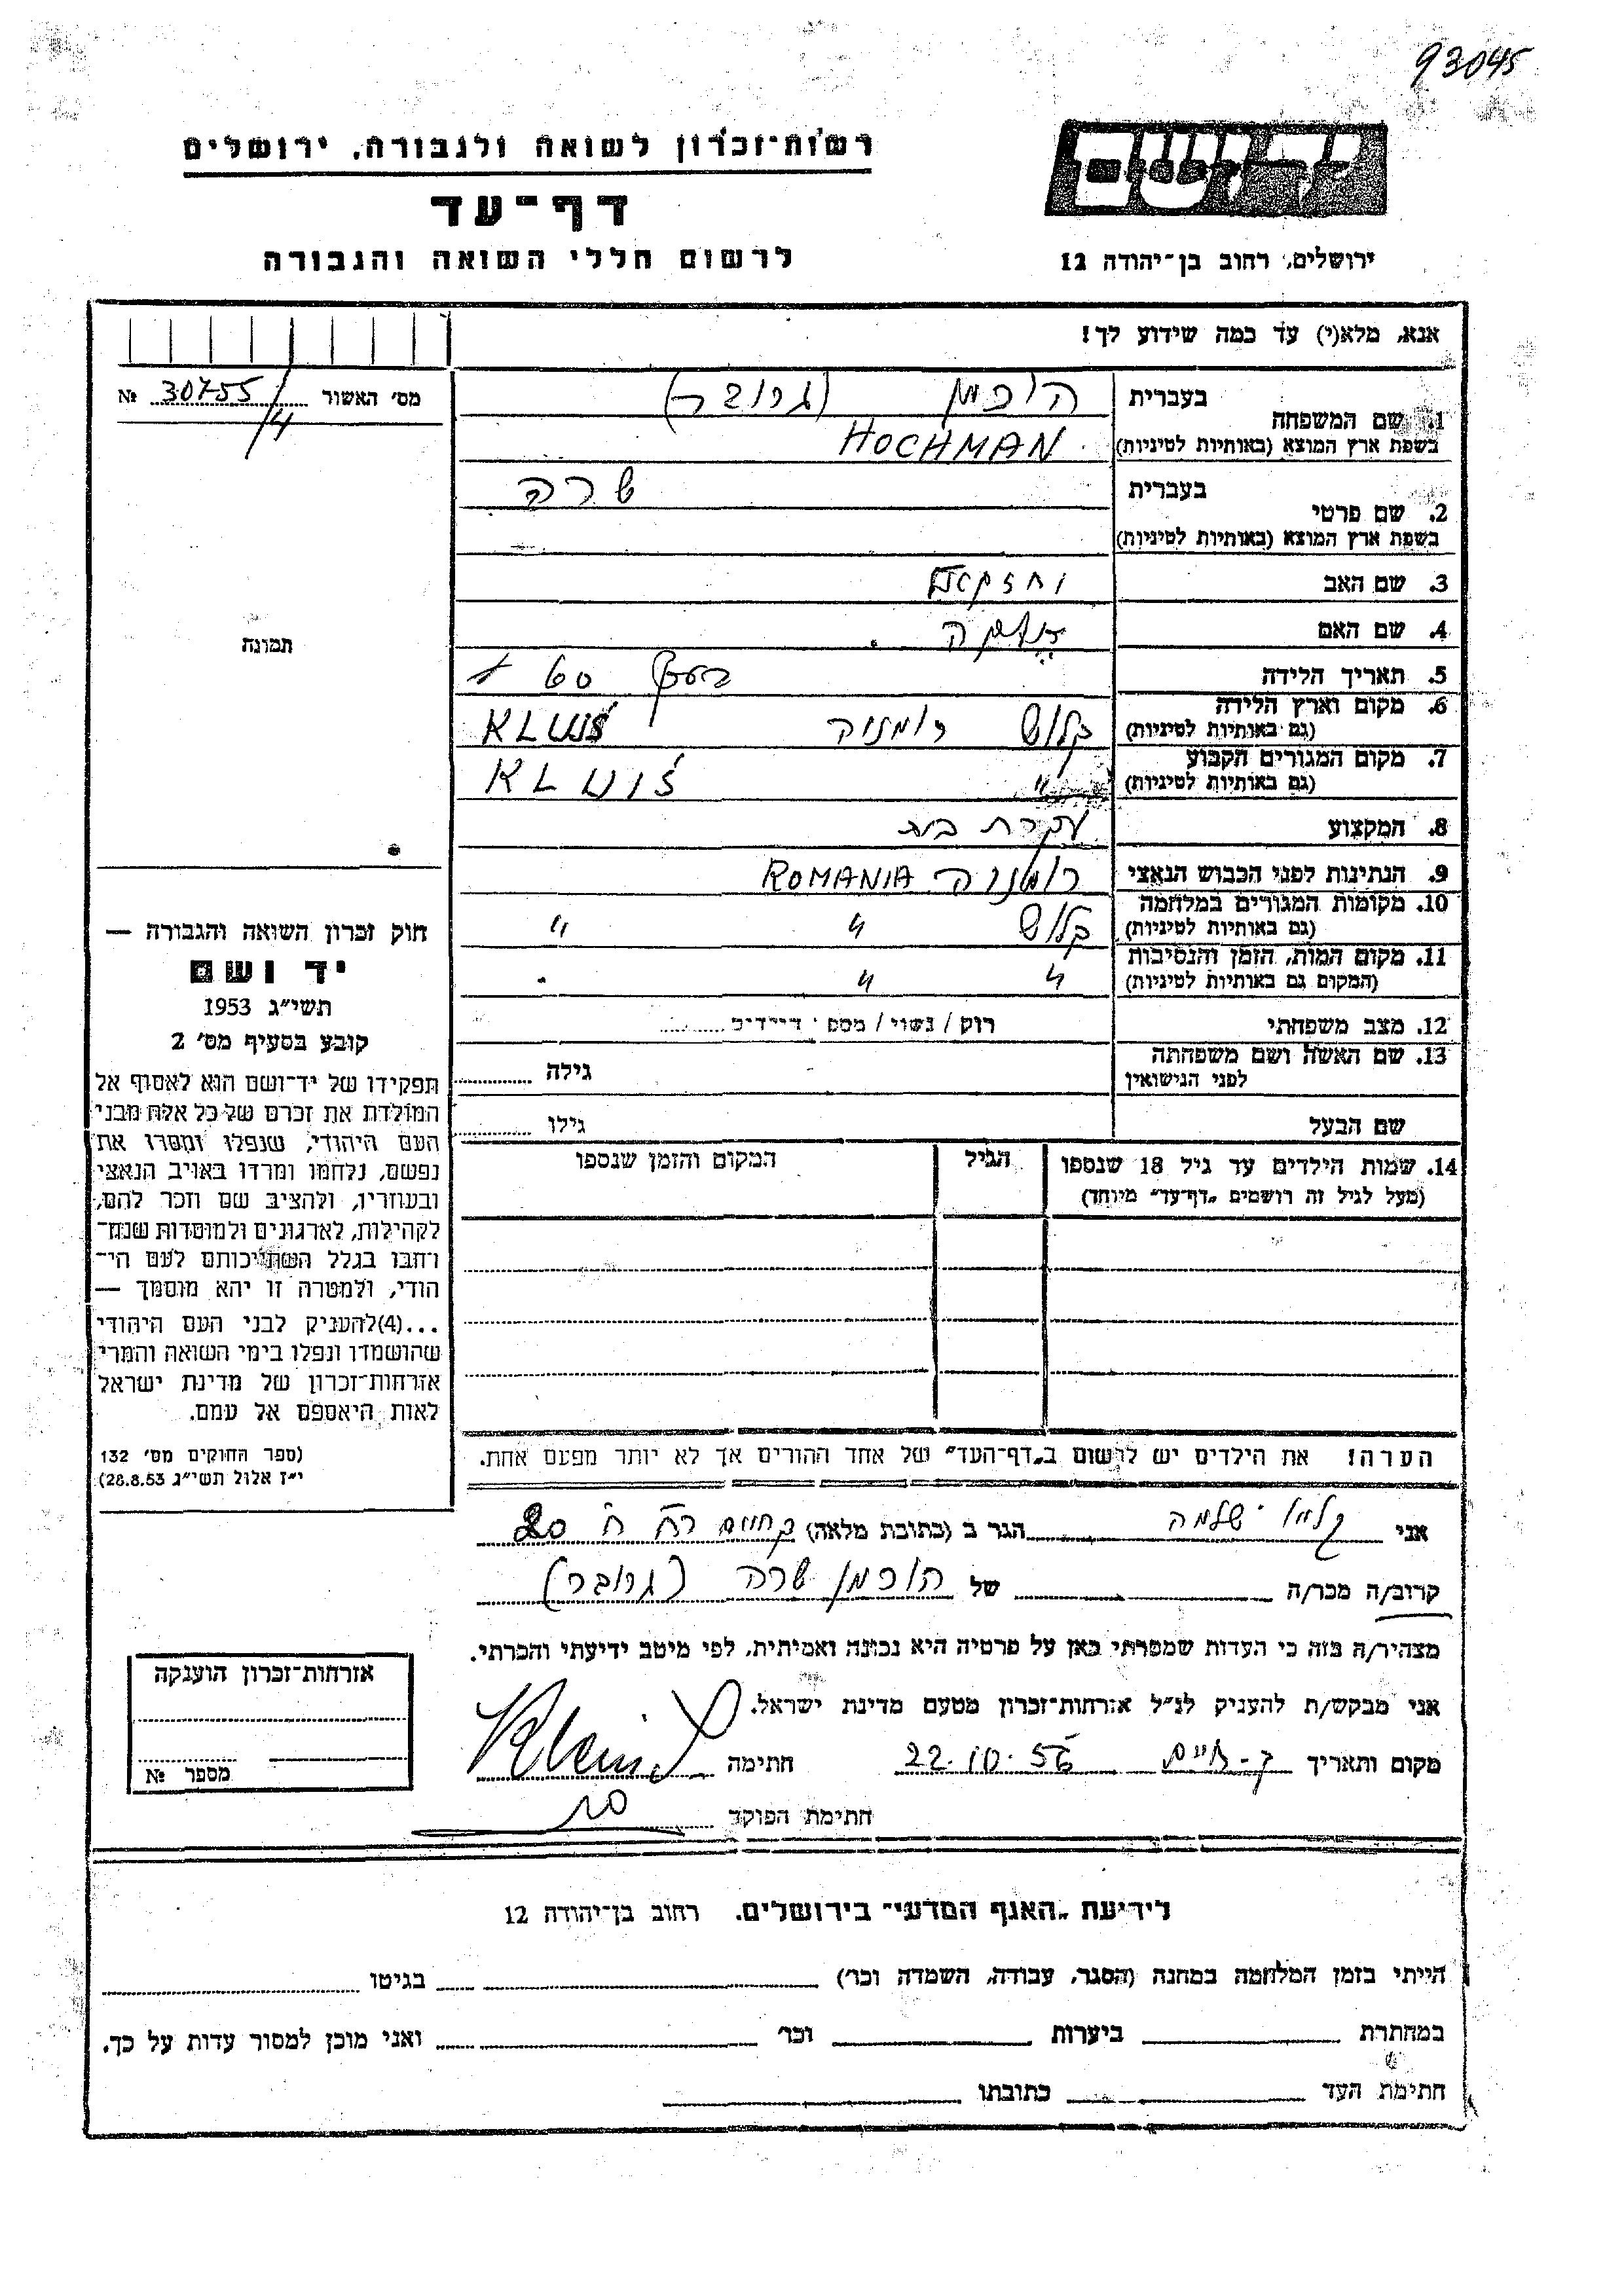 93045
יד ושם
רשות־זכרון לשואה ולגבורה, ירושלים
דף־עד
לרשום חללי השואה והגבורה
ירושלים, רחוב בן־יהודה 12
אנא, מלא(י) עד כמה שידוע לך!
מס׳ האשור 30755/14 №
1. שם המשפחה
בעברית הוכמן (גרובר)
בשפת ארץ המוצא (באותיות לטיניות) HOCHMAN
2. שם פרטי
בעברית שרה
בשפת ארץ המוצא (באותיות לטיניות)
3. שם האב יחזקאל
4. שם האם
5. תאריך הלידה בערך 60
6. מקום וארץ הלידה
(גם באותיות לטיניות) קלוש רומניה KLUIŠ
7. מקום המגורים הקבוע
(גם באותיות לטיניות) " KLUIŠ
8. המקצוע עקרת בית
9. הנתינות לפני הכבוש הנאצי רומניה ROMANIA
10. מקומות המגורים במלחמה
(גם באותיות לטיניות) קלוש " "
11. מקום המות, הזמן והנסיבות
(המקום גם באותיות לטיניות) " "
12. מצב משפחתי רוק / נשוי / מספר ילדים
13. שם האשה ושם משפחתה
לפני הנישואין גילה
שם הבעל גילו
14. שמות הילדים עד גיל 18 שנספו הגיל המקום והזמן שנספו
(מעל לגיל זה רושמים „דף־עד״ מיוחד)
תמונה
חוק זכרון השואה והגבורה —
יד ושם
תשי״ג 1953
קובע בסעיף מס׳ 2
תפקידו של יד־ושם הוא לאסוף אל
המולדת את זכרם של כל אלה מבני
העם היהודי, שנפלו ומסרו את
נפשם, נלחמו ומרדו באויב הנאצי
ובעוזריו, ולהציב שם וזכר להם,
לקהילות, לארגונים ולמוסדות שנח־
רבו בגלל השתייכותם לעם הי־
הודי, ולמטרה זו יהא מוסמך —
...(4)להעניק לבני העם היהודי
שהושמדו ונפלו בימי השואה והמרי
אזרחות־זכרון של מדינת ישראל
לאות היאספם אל עמם.
(ספר החוקים מס׳ 132
י״ז אלול תשי״ג 28.8.53)
הערה! את הילדים יש לרשום ב„דף־העד״ של אחד ההורים אך לא יותר מפעם אחת.
אני קליין שלמה הגר ב (כתובת מלאה) ק חיים רח ח 20
קרוב/ה מכר/ה של הוכמן שרה (גרובר)
מצהיר/ה בזה כי העדות שמסרתי כאן על פרטיה היא נכונה ואמיתית, לפי מיטב ידיעתי והכרתי.
אני מבקש/ת להעניק לנ״ל אזרחות־זכרון מטעם מדינת ישראל.
מקום ותאריך ק-חיים 22.10.56 חתימה Klein
חתימת הפוקד
אזרחות־זכרון הוענקה
מספר №
לידיעת „האגף המדעי״ בירושלים, רחוב בן־יהודה 12
הייתי בזמן המלחמה במחנה (הסגר, עבודה, השמדה וכו׳) בגיטו
במחתרת ביערות וכו׳ ואני מוכן למסור עדות על כך.
חתימת העד כתובתו